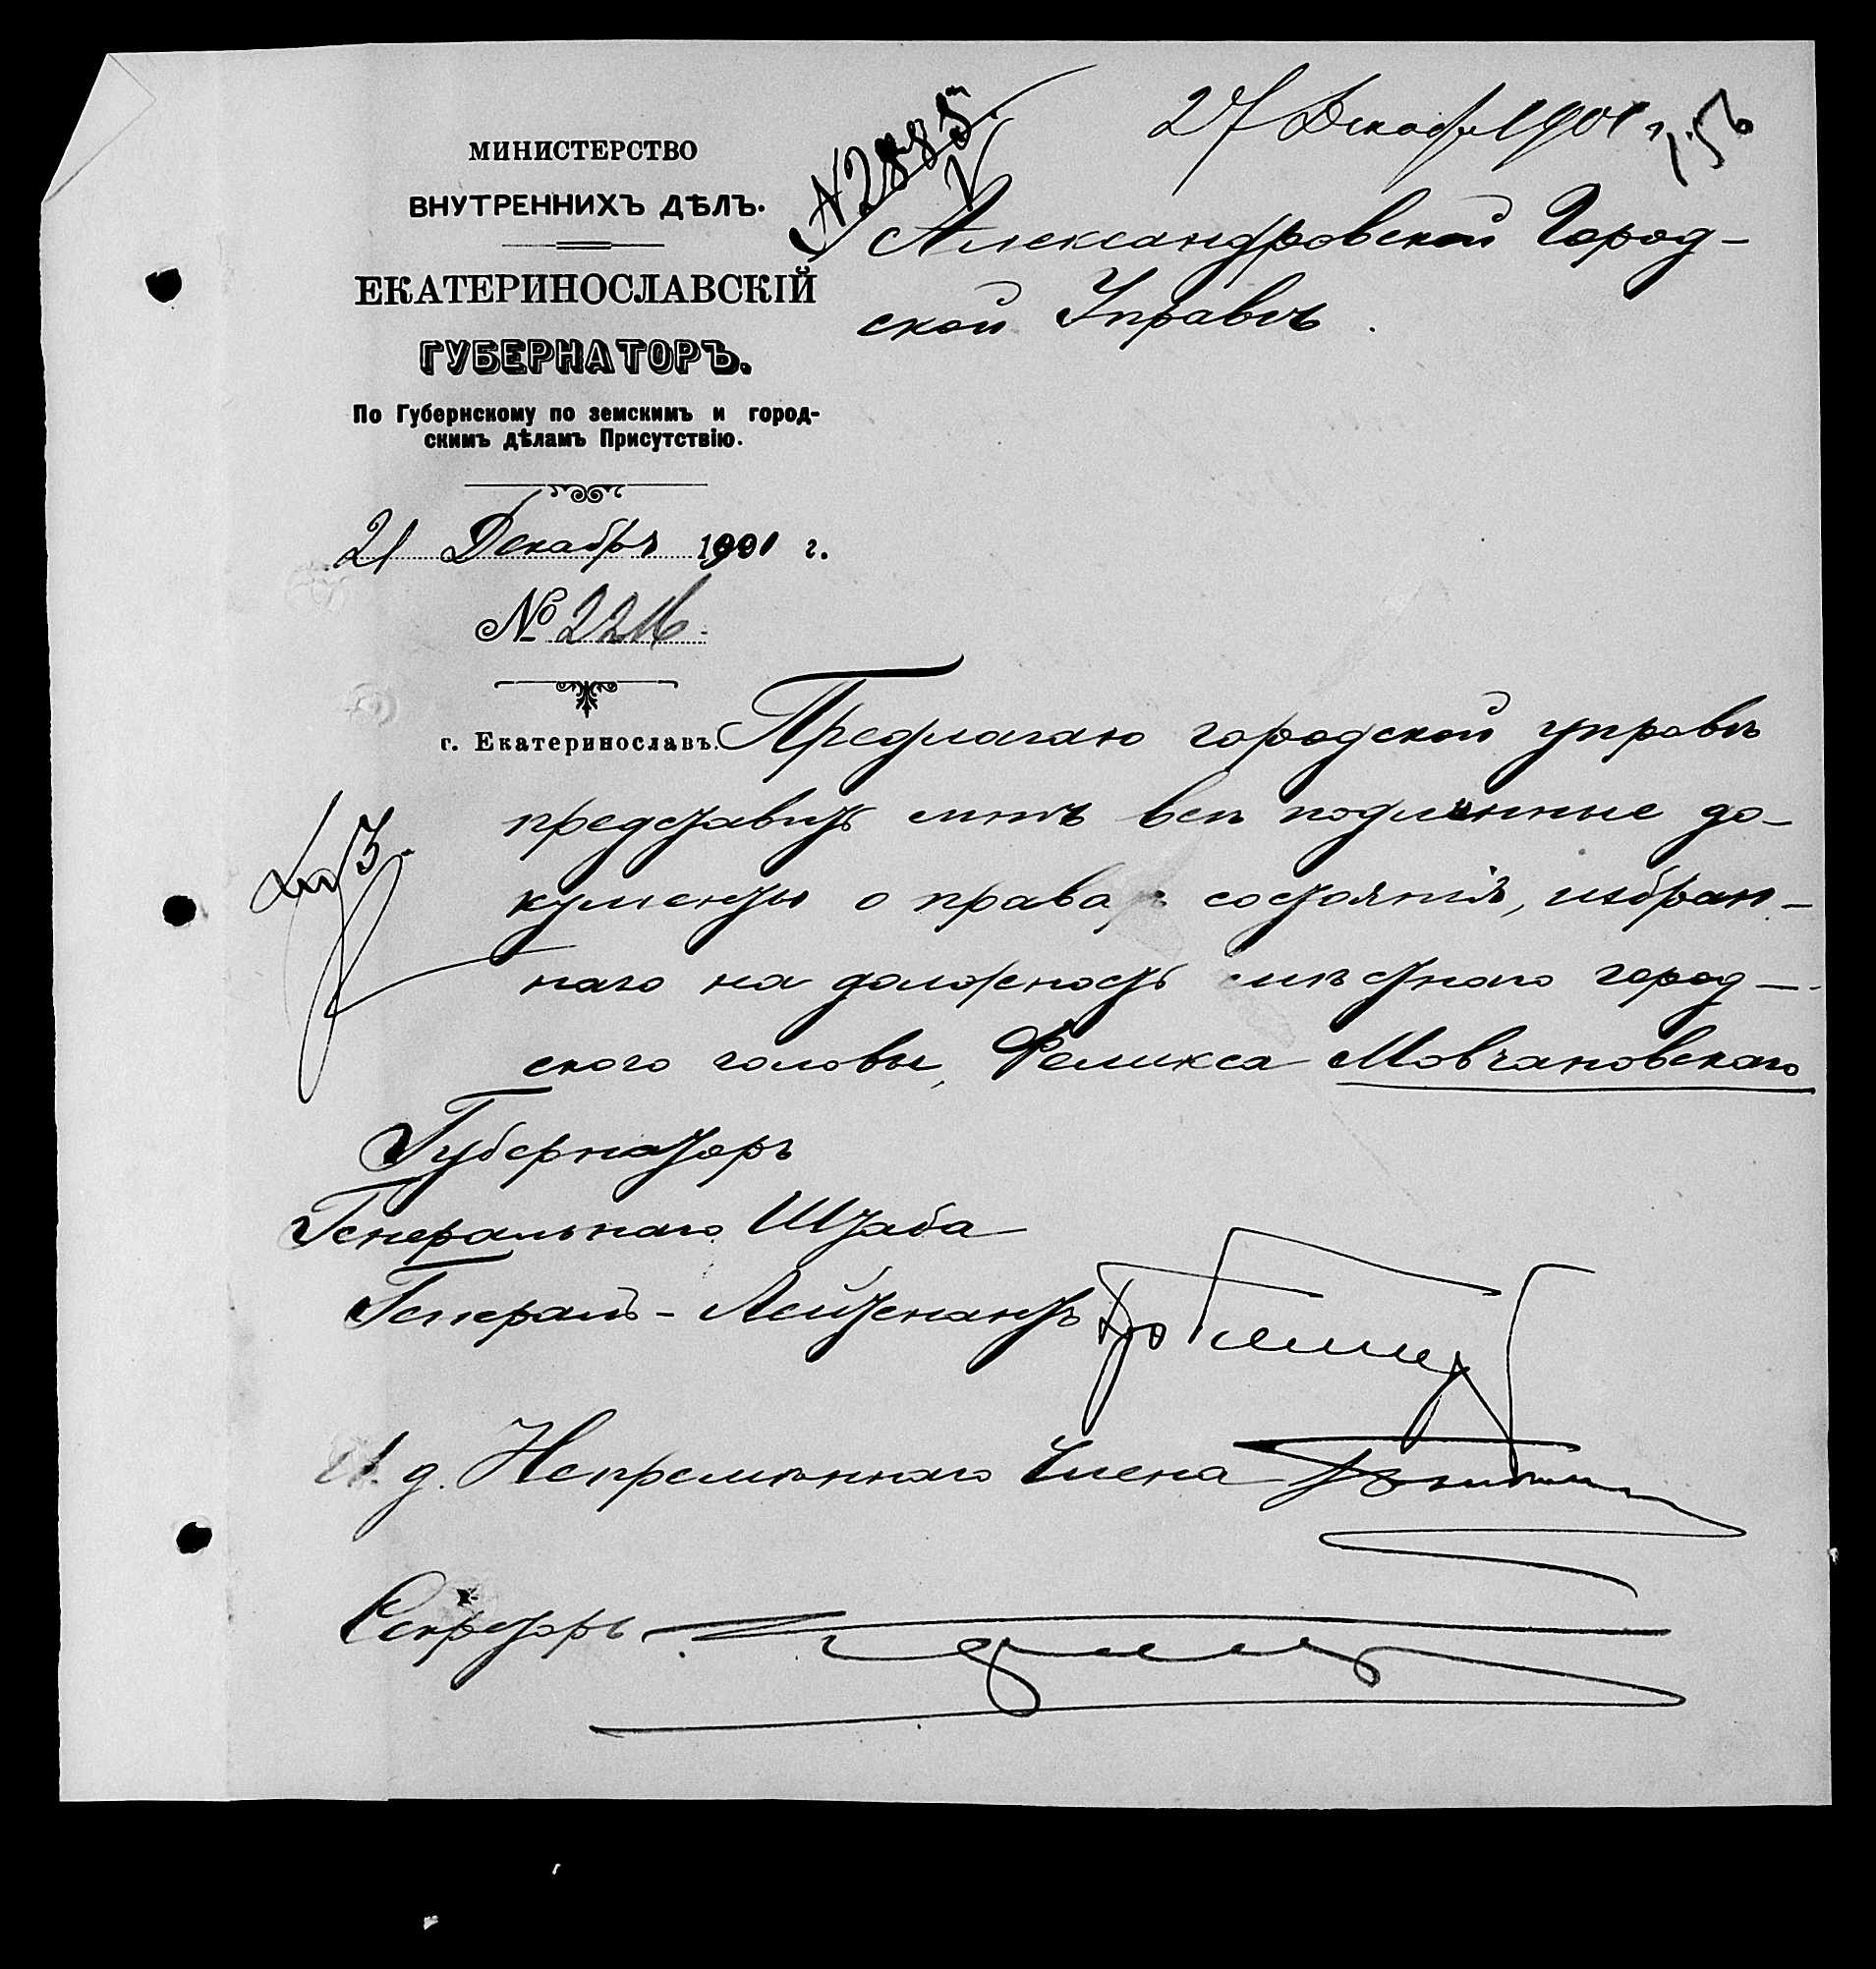 № 2885
27 Декабр 1901 г.
МИНИСТЕРСТВО
ВНУТРЕННИХЪ ДѢЛЪ.
ЕКАТЕРИНОСЛАВСКІЙ
ГУБЕРНАТОРЪ.
По Губернскому по земскимъ и город-
скимъ дѣламъ Присутствію.
21 Декабря 1901 г.
№ 2216
г. Екатеринославъ.
Александровской Город-
ской Управѣ.
Предлагаю городской управѣ
представить мнѣ всѣ подлинные до-
кументы о правахъ состоянія, избран-
наго на должность мѣстнаго город-
ского головы, Феликса Мовчановскаго
Губернаторъ
Генеральнаго Штаба
Генералъ-Лейтенантъ
И. д. Непремѣннаго Члена
Секретарь